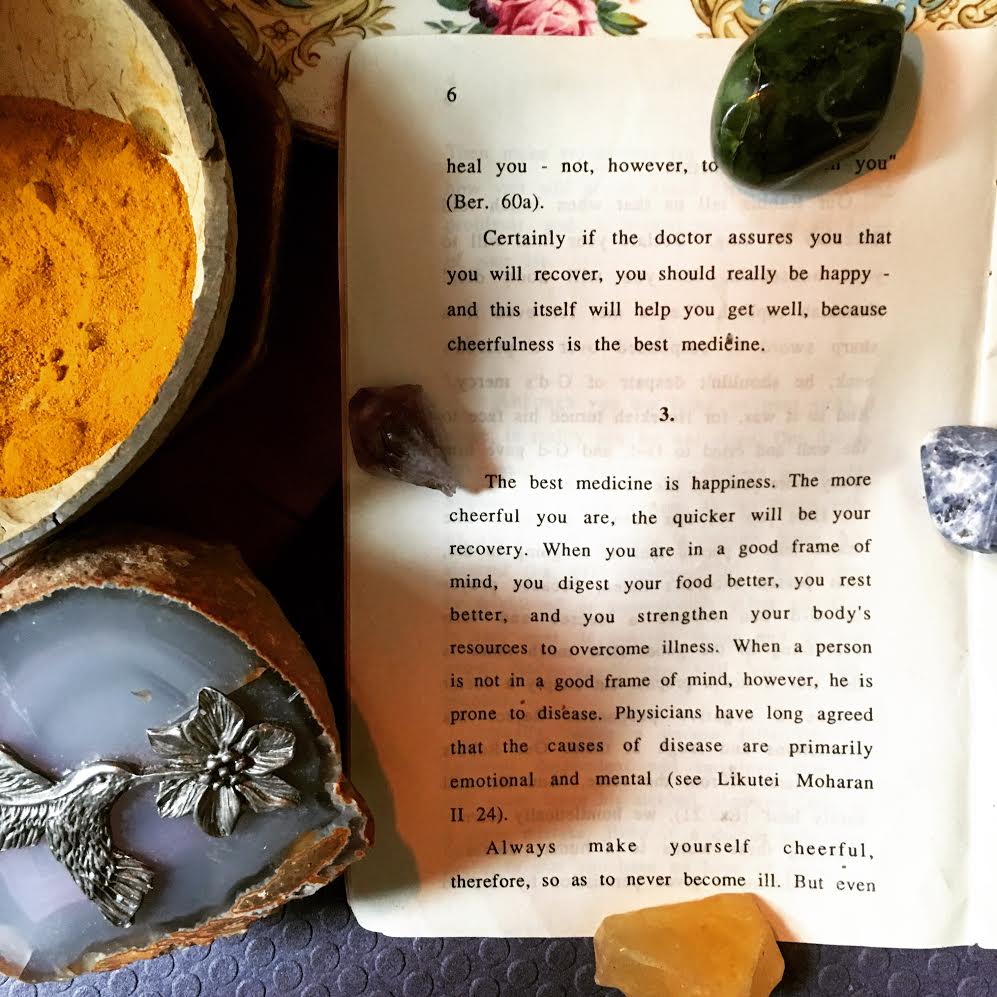 6
heal you - not, however, to you"
(Ber. 60a).
Certainly if the doctor assures you that
you will recover, you should really be happy -
and this itself will help you get well, because
cheerfulness is the best medicine.
3.
The best medicine is happiness. The more
cheerful you are, the quicker will be your
recovery. When you are in a good frame of
mind, you digest your food better, you rest
better, and you strengthen your body's
resources to overcome illness. When a person
is not in a good frame of mind, however, he is
prone to disease. Physicians have long agreed
that the causes of disease are primarily
emotional and mental (see Likutei Moharan
II 24).
Always make yourself cheerful,
therefore, so as to never become ill. But even